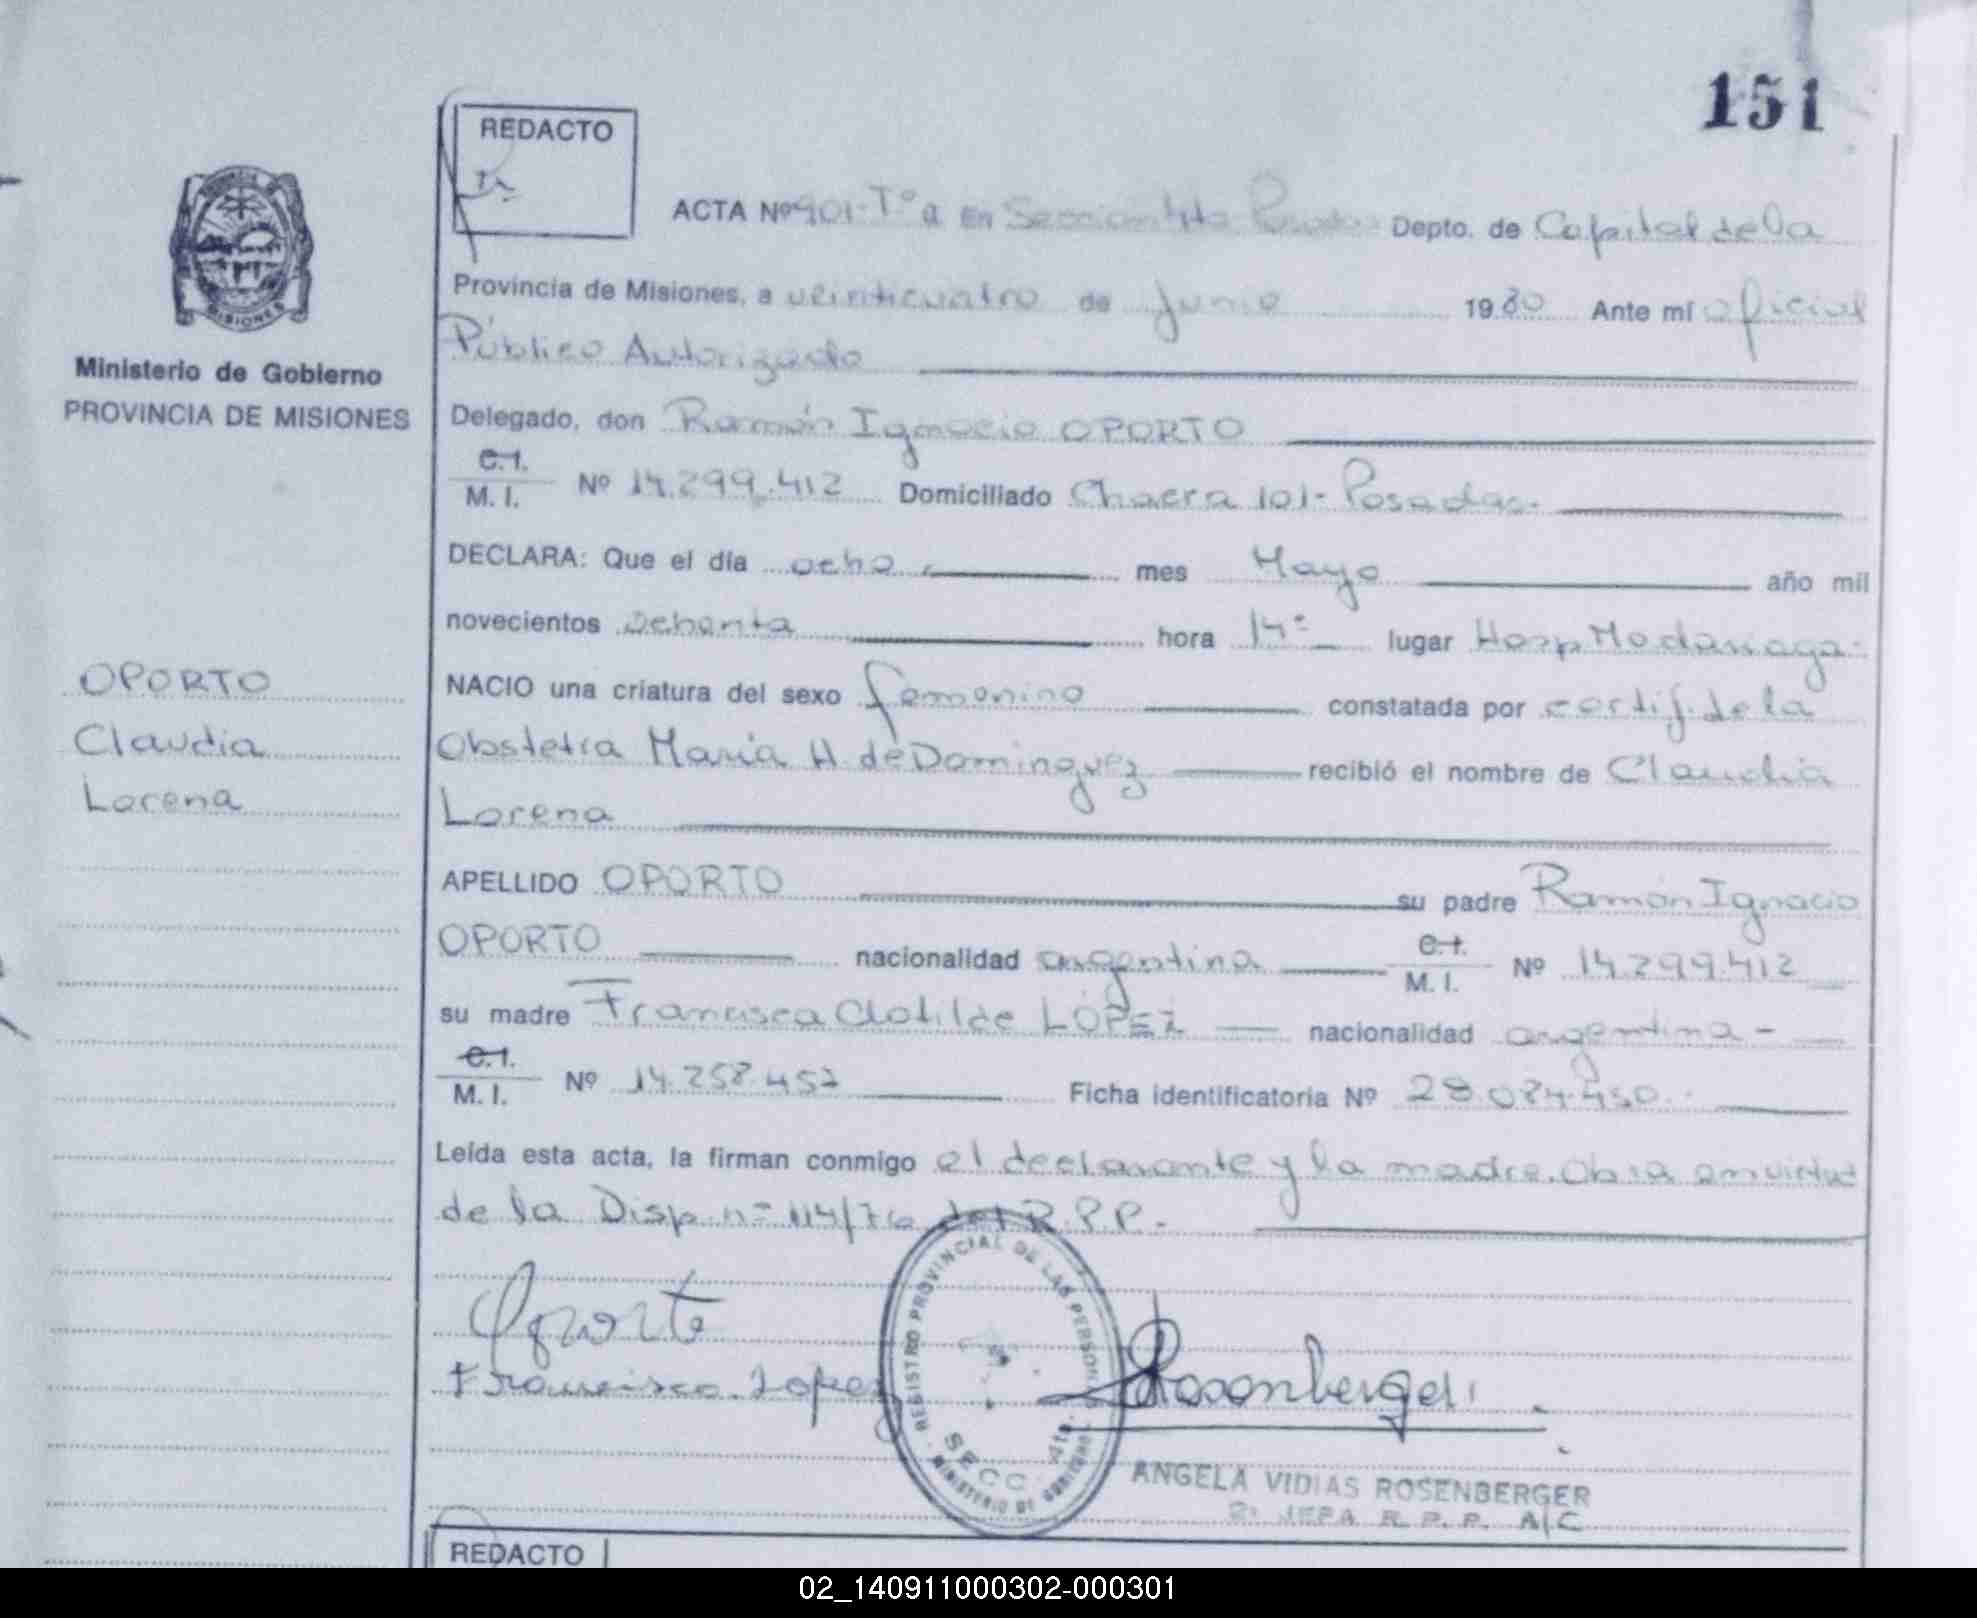 151
REDACTO
ACTA Nº 901-Tº a En Sección 4ta Posadas Depto. de Capital de la
Provincia de Misiones, a veinticuatro de Junio 1980 Ante mí oficial
Público Autorizado
Delegado, don Ramón Ignacio OPORTO
C.I. M.I. Nº 14.299.412 Domiciliado Chacra 101- Posadas.
DECLARA: Que el día ocho mes Mayo año mil
novecientos ochenta hora 14 lugar Hosp Madariaga-
NACIO una criatura del sexo femenino constatada por certif. de la
Obstetra María H. de Dominguez recibió el nombre de Claudia
Lorena
APELLIDO OPORTO su padre Ramón Ignacio
OPORTO nacionalidad argentina C.I. M.I. Nº 14.299.412
su madre Francisca Clotilde LÓPEZ nacionalidad argentina-
C.I. M.I. Nº 14.258.457 Ficha identificatoria Nº 28.084.450.
Leída esta acta, la firman conmigo el declarante y la madre. Obra en virtud
de la Disp. nº 114/76 del R.P.P.
Oporto
Francisca Lopez
Rosenberger
REGISTRO PROVINCIAL DE LAS PERSONAS
SECC. 4ta.
MINISTERIO DE GOBIERNO
ANGELA VIDIAS ROSENBERGER
2º JEFA R.P.P. A/C
REDACTO
MISIONES
Ministerio de Gobierno
PROVINCIA DE MISIONES
OPORTO
Claudia
Lorena
02_140911000302-000301